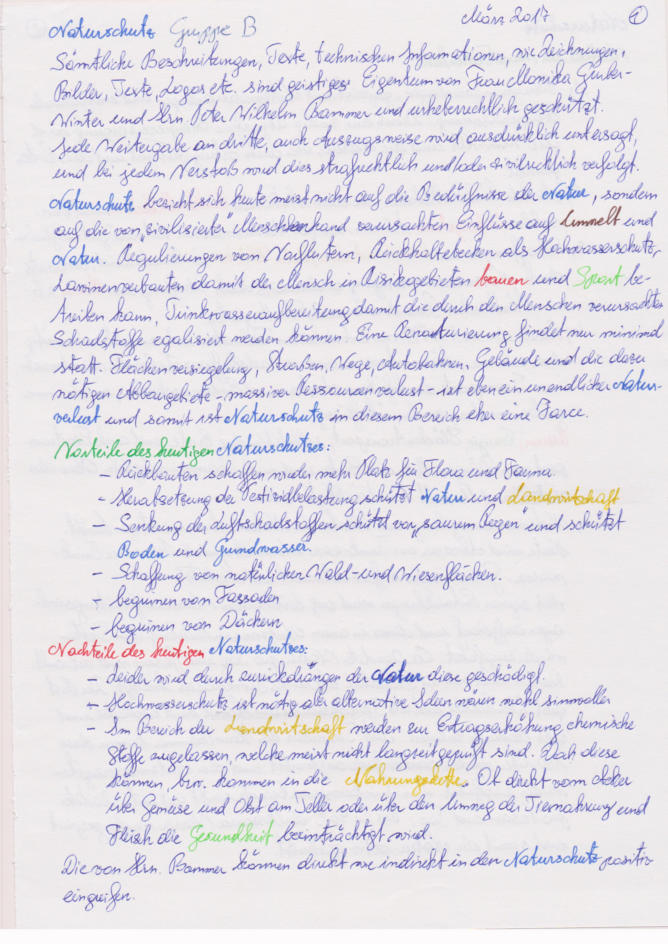 März 2017 1
Naturschutz Gruppe B
Sämtliche Beschreibungen, Texte, technischen Informationen, wie Zeichnungen,
Bilder, Texte, Logos etc. sind geistiges Eigentum von Frau Monika Gruber-
Winter und Hrn. Peter Wilhelm Bammer und urheberrechtlich geschützt.
Jede Weitergabe an dritte, auch Auszugsweise wird ausdrücklich untersagt,
und bei jedem Verstoß wird dies strafrechtlich und/oder zivilrechtlich verfolgt.
Naturschutz bezieht sich heute meist nicht auf die Bedürfnisse der Natur, sondern
auf die von „zivilisierter" Menschenhand verursachten Einflüsse auf Umwelt und
Natur. Regulierungen von Vorflutern, Rückhaltebecken als Hochwasserschutz,
Lawinenverbauten damit der Mensch in Risikogebieten bauen und Sport be-
treiben kann, Trinkwasseraufbereitung damit die durch den Menschen verursachte
Schadstoffe egalisiert werden können. Eine Renaturierung findet nur minimal
statt. Flächenversiegelung, Straßen, Wege, Autobahnen, Gebäude und die dazu
nötigen Abbaugebiete - massiver Ressourcenverlust - ist eben ein unendlicher Natur-
verlust und somit ist Naturschutz in diesem Bereich eher eine Farce.
Vorteile des heutigen Naturschutzes:
- Rückbauten schaffen wieder mehr Platz für Flora und Fauna
- Herabsetzung der Pestizidbelastung schützt Natur und Landwirtschaft
- Senkung der Luftschadstoffen schützt vor „saurem Regen" und schützt
Boden und Grundwasser.
- Schaffung von natürlichen Wald- und Wiesenflächen.
- begrünen von Fassaden
- begrünen von Dächern
Nachteile des heutigen Naturschutzes:
- Leider wird durch zurückdrängen der Natur diese geschädigt.
- Hochwasserschutz ist nötig aber alternative Ideen wären wohl sinnvoller
- Im Bereich der Landwirtschaft werden zur Ertragserhöhung chemische
Stoffe zugelassen, welche meist nicht langzeitgeprüft sind. Doch diese
können, bzw. kommen in die Nahrungskette. Ob direkt vom Acker
über Gemüse und Obst am Teller oder über den Umweg der Tiernahrung und
Fleisch die Gesundheit beeinträchtigt wird.
Die von Hrn. Bammer können direkt wie indirekt in den Naturschutz positiv
eingreifen.